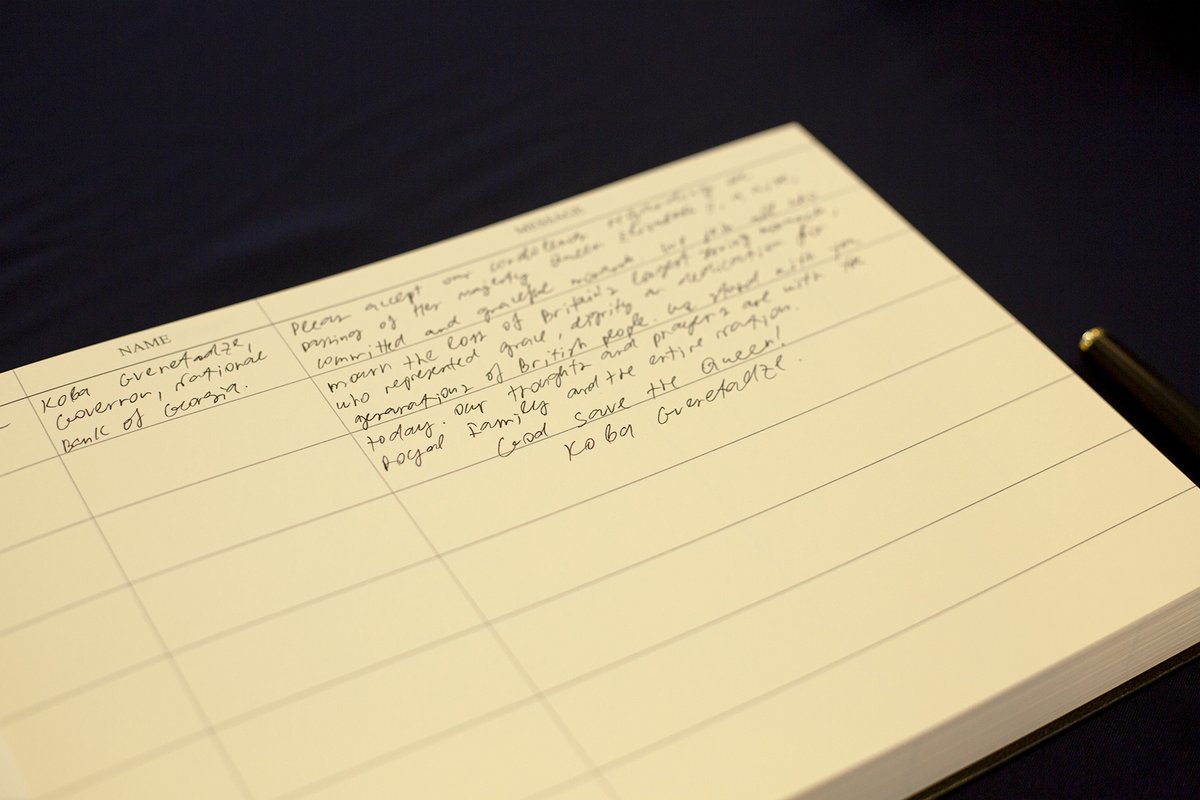 NAME
MESSAGE
Koba Gvenetadze,
Governor, National
Bank of Georgia.
Pleas accept our condolences regarding the
passing of Her Majesty Queen Elizabeth
committed and graceful monarch. We
mourn the loss of Britain's longest serving monarch,
who represented grace, dignity an dedication for
generations of British people. We stand with you
today. Our thoughts and prayers are with the
Royal Family and the entire nation.
God save the Queen!
Koba Gvenetadze.